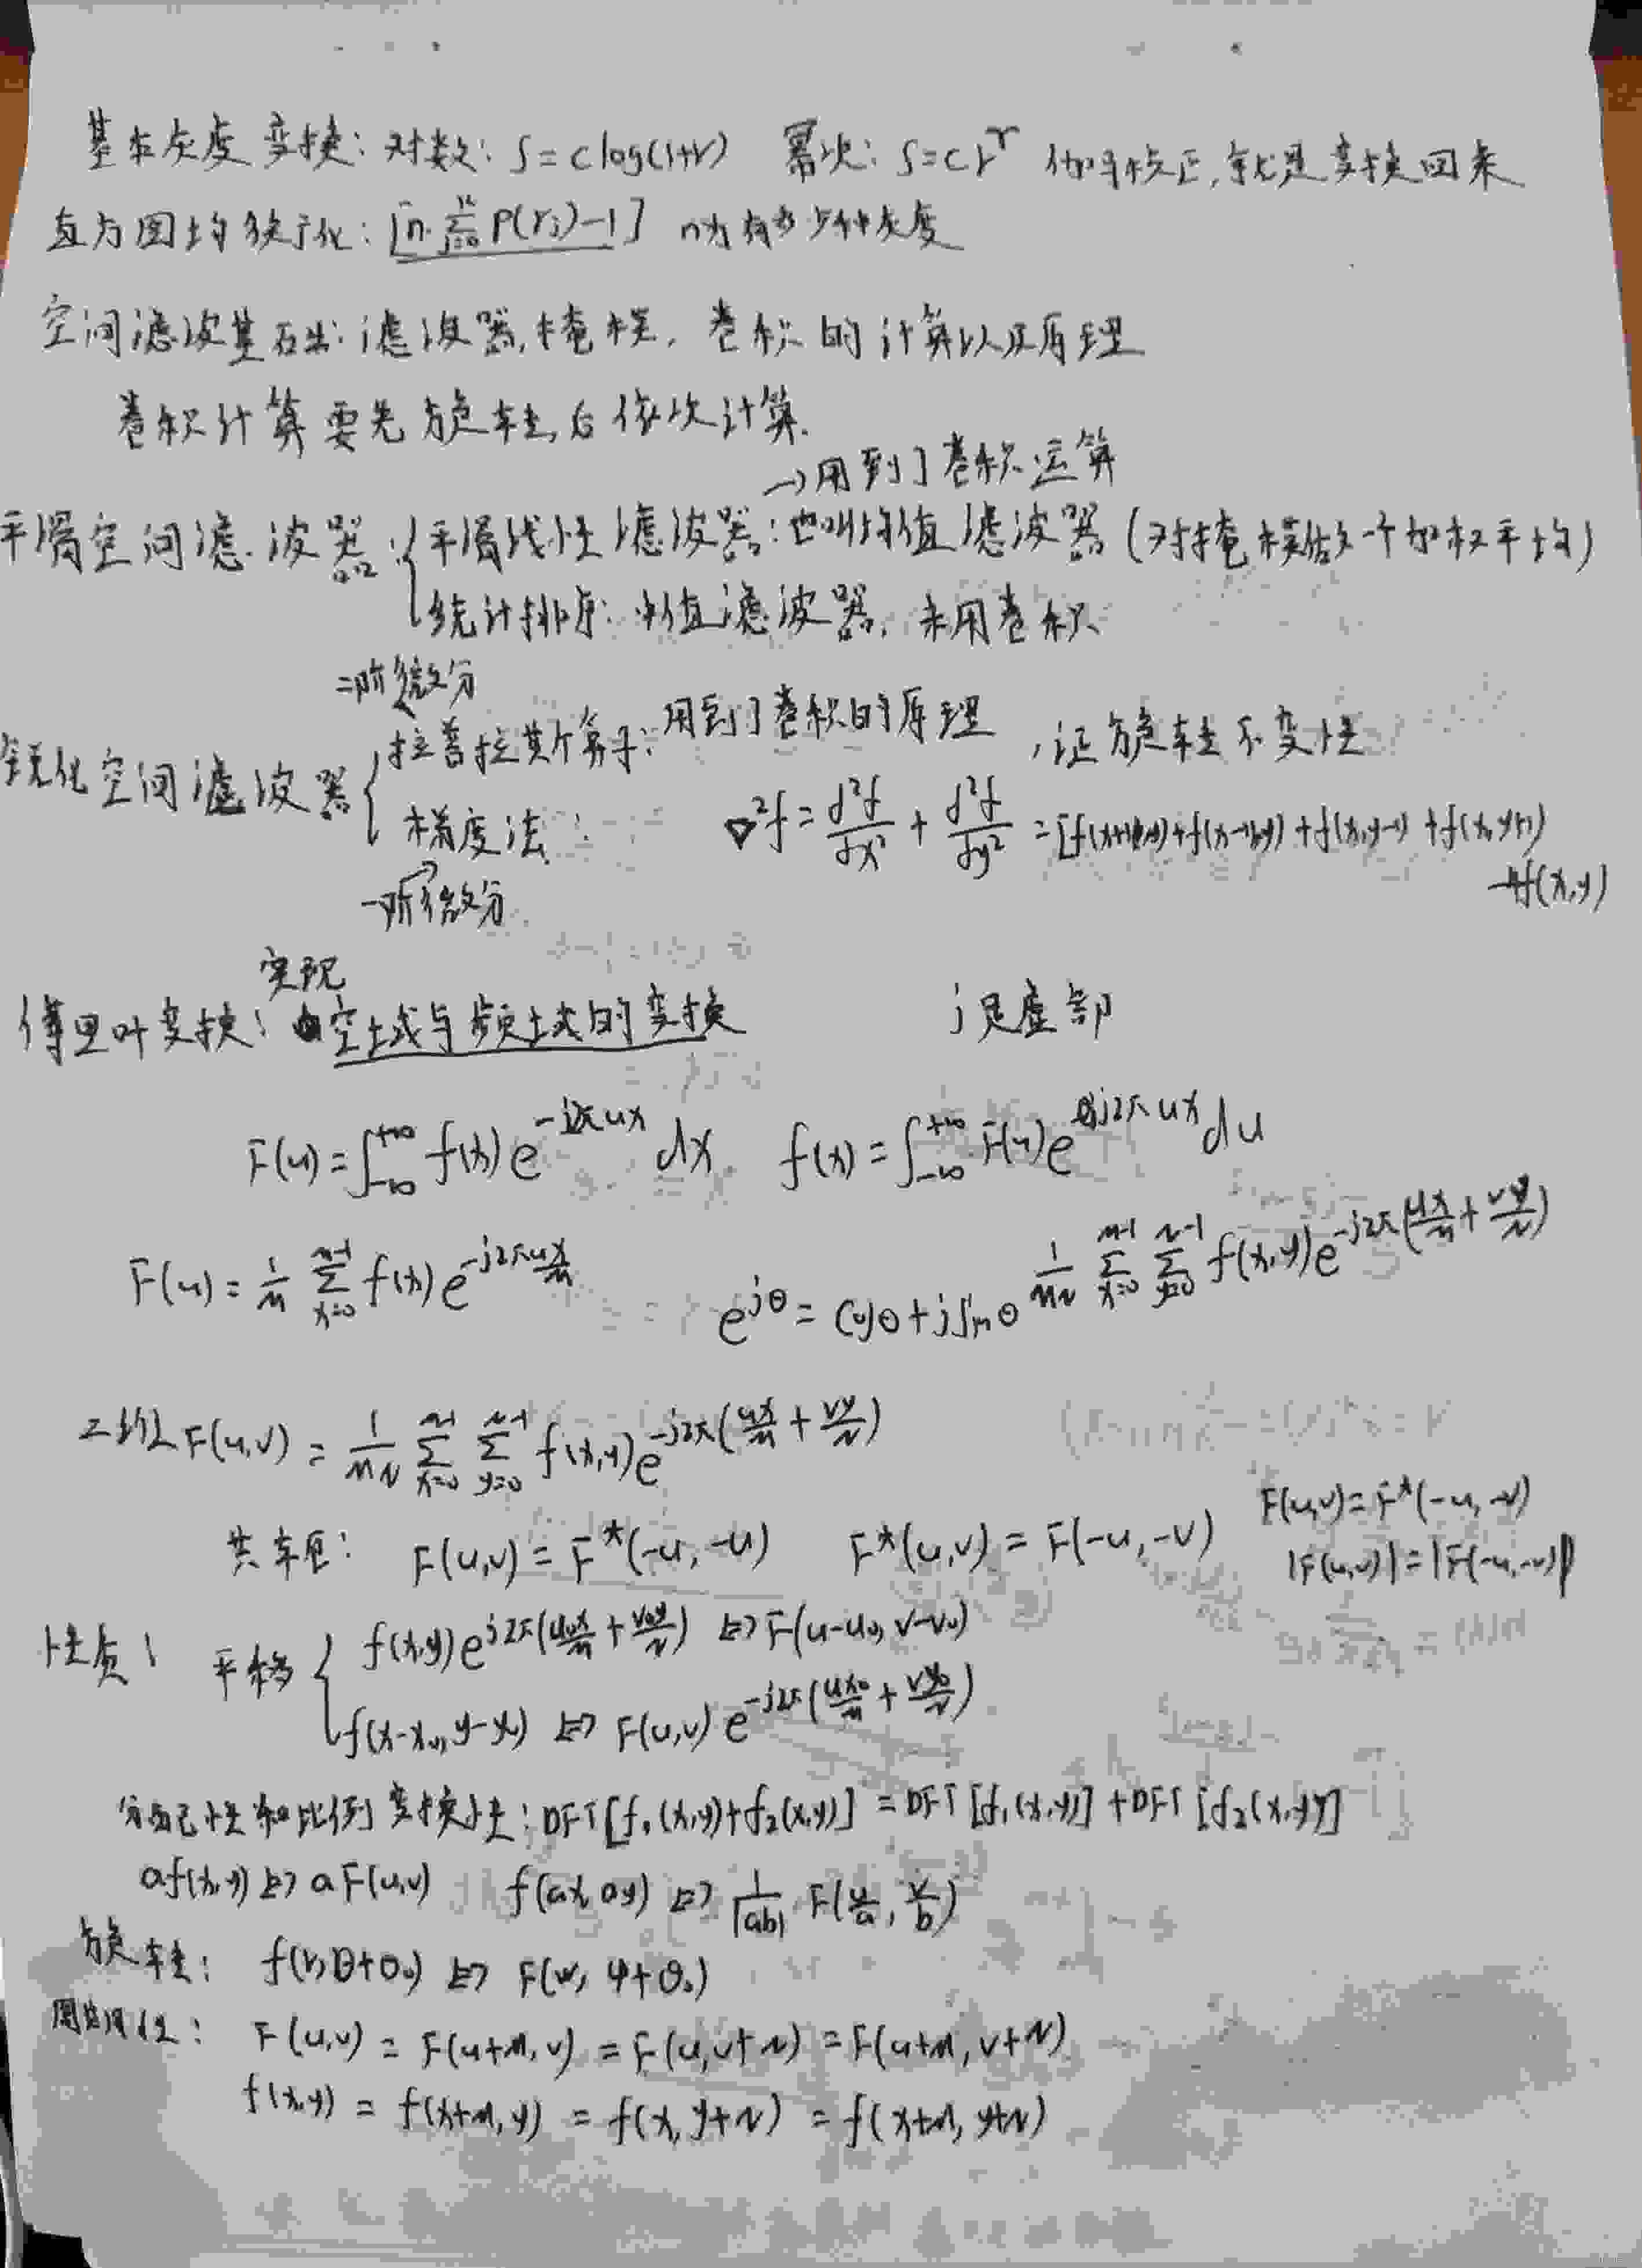 基本灰度变换: 对数: S=clog(1+r) 幂次: S=cr^γ 伽马校正,就是变换回来
直方图均衡化: [n·∑_{j=0}^{k} P(r_j)-1] n为有多少种灰度
空间滤波基础: 滤波器,掩模, 卷积的计算以及原理
卷积计算要先旋转,后依次计算.
→用到了卷积运算
平滑空间滤波器: { 平滑线性滤波器: 也叫均值滤波器 (对掩模做一个加权平均)
统计排序: 中值滤波器, 未用卷积
二阶微分
锐化空间滤波器 { 拉普拉斯算子: 用到了卷积的原理 , 证旋转不变性
梯度法: ▽²f = d²f/dx² + d²f/dy² = [f(x+1,y)+f(x-1,y)+f(x,y-1)+f(x,y+1)
-4f(x,y)
一阶微分
实现
傅里叶变换: 空域与频域的变换 j是虚部
F(u) = ∫_{-∞}^{+∞} f(x) e^{-j2πux} dx f(x) = ∫_{-∞}^{+∞} F(u) e^{j2πux} du
F(u) = 1/M ∑_{x=0}^{M-1} f(x) e^{-j2πux/M} e^{jθ} = cosθ+jsinθ 1/MN ∑_{x=0}^{M-1} ∑_{y=0}^{N-1} f(x,y) e^{-j2π(ux/M + vy/N)}
二维 F(u,v) = 1/MN ∑_{x=0}^{M-1} ∑_{y=0}^{N-1} f(x,y) e^{-j2π(ux/M + vy/N)}
共轭: F(u,v) = F*(-u,-u) F*(u,v) = F(-u,-v) F(u,v)=F*(-u,-v)
|F(u,v)|=|F(-u,-v)|
性质: 平移 { f(x,y) e^{j2π(u₀x/M + v₀y/N)} ⇔ F(u-u₀, v-v₀)
f(x-x₀, y-y₀) ⇔ F(u,v) e^{-j2π(ux₀/M + vy₀/N)}
分配性和比例变换性: DFT[f₁(x,y)+f₂(x,y)] = DFT[f₁(x,y)] + DFT[f₂(x,y)]
af(x,y) ⇔ aF(u,v) f(ax, ay) ⇔ 1/|ab| F(u/a, v/b)
旋转: f(r,θ+θ₀) ⇔ F(w, φ+θ₀)
周期性: F(u,v) = F(u+M, v) = F(u,v+N) = F(u+M, v+N)
f(x,y) = f(x+M, y) = f(x, y+N) = f(x+M, y+N)